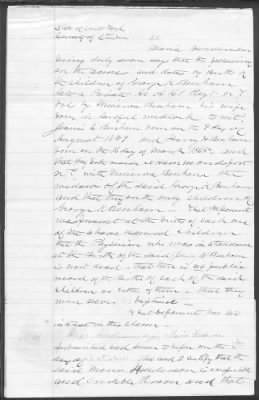 State of New York
County of Steuben SS
Maria Henderson
being duly sworn says that the following
are the names and dates of birth of
the children of George R Benham
late a Private Co. A 161 Reg't N.Y.
Vols by Minerva Benham his wife
born in lawful wedlock to wit,
Jennie E Benham born on the 9 day of
August 1859 and Harry Benham
born on the day of March 1862 and
that they both reside at
N.Y. with Minerva Benham the
widow of the said George R Benham
and that they are the only children of
George R Benham - that deponent
was present at the birth of each one
of the above named children
that the Physician who was in attendance
at the birth of the said Benham
is now dead, that there is no public
record of the birth of each of the said
children or either of them - that they
were never baptised -
& that deponent has no
interest in this claim.
Subscribed and sworn to before me this
day of and I certify that the
said Maria Henderson is respectable
and credible person and that